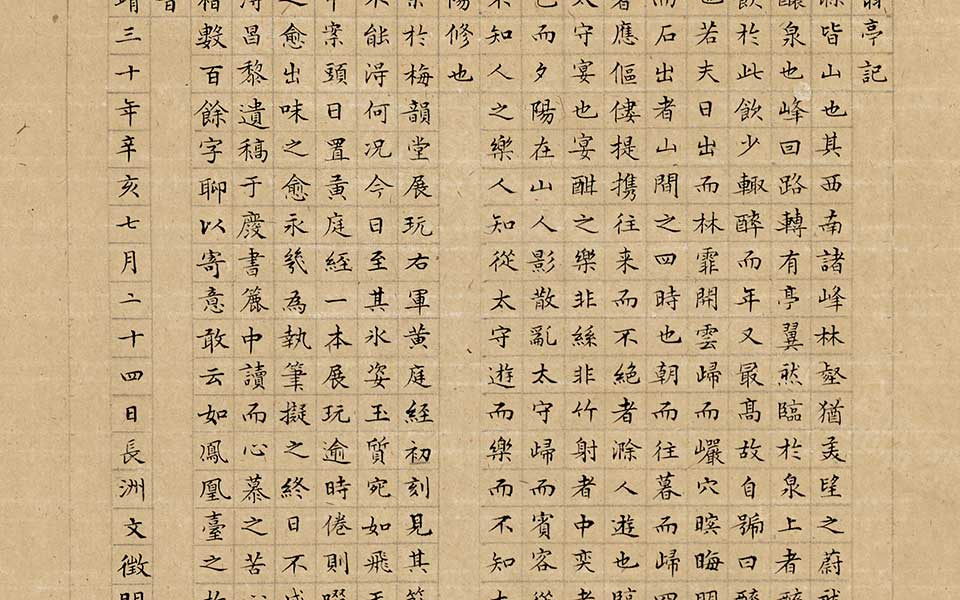 亭記
皆山也其西南諸峰林壑猶美望之蔚
釀泉也峰回路轉有亭翼然臨於泉上者
飲於此飲少輒醉而年又最高故自號曰
也若夫日出而林霏開雲歸而巖穴暝晦明
而石出者山間之四時也朝而往暮而歸四
者應傴僂提携往来而不絕者滁人遊也臨
太守宴也宴酣之樂非絲非竹射者中奕者
已而夕陽在山人影散亂太守歸而賓容從
知人之樂人知從太守遊而樂而不知太
陽修也
於梅韻堂展玩右軍黄庭經初刻見其
能得何况今日至其氷姿玉質宛如飛天
案頭日置黄庭經一本展玩逾時倦則啜
之愈出味之愈永幾為執筆擬之終日不成
昌黎遺稿于慶書簏中讀而心慕之苦
數百餘字聊以寄意敢云如鳳凰臺之
靖三十年辛亥七月二十四日長洲文徵明